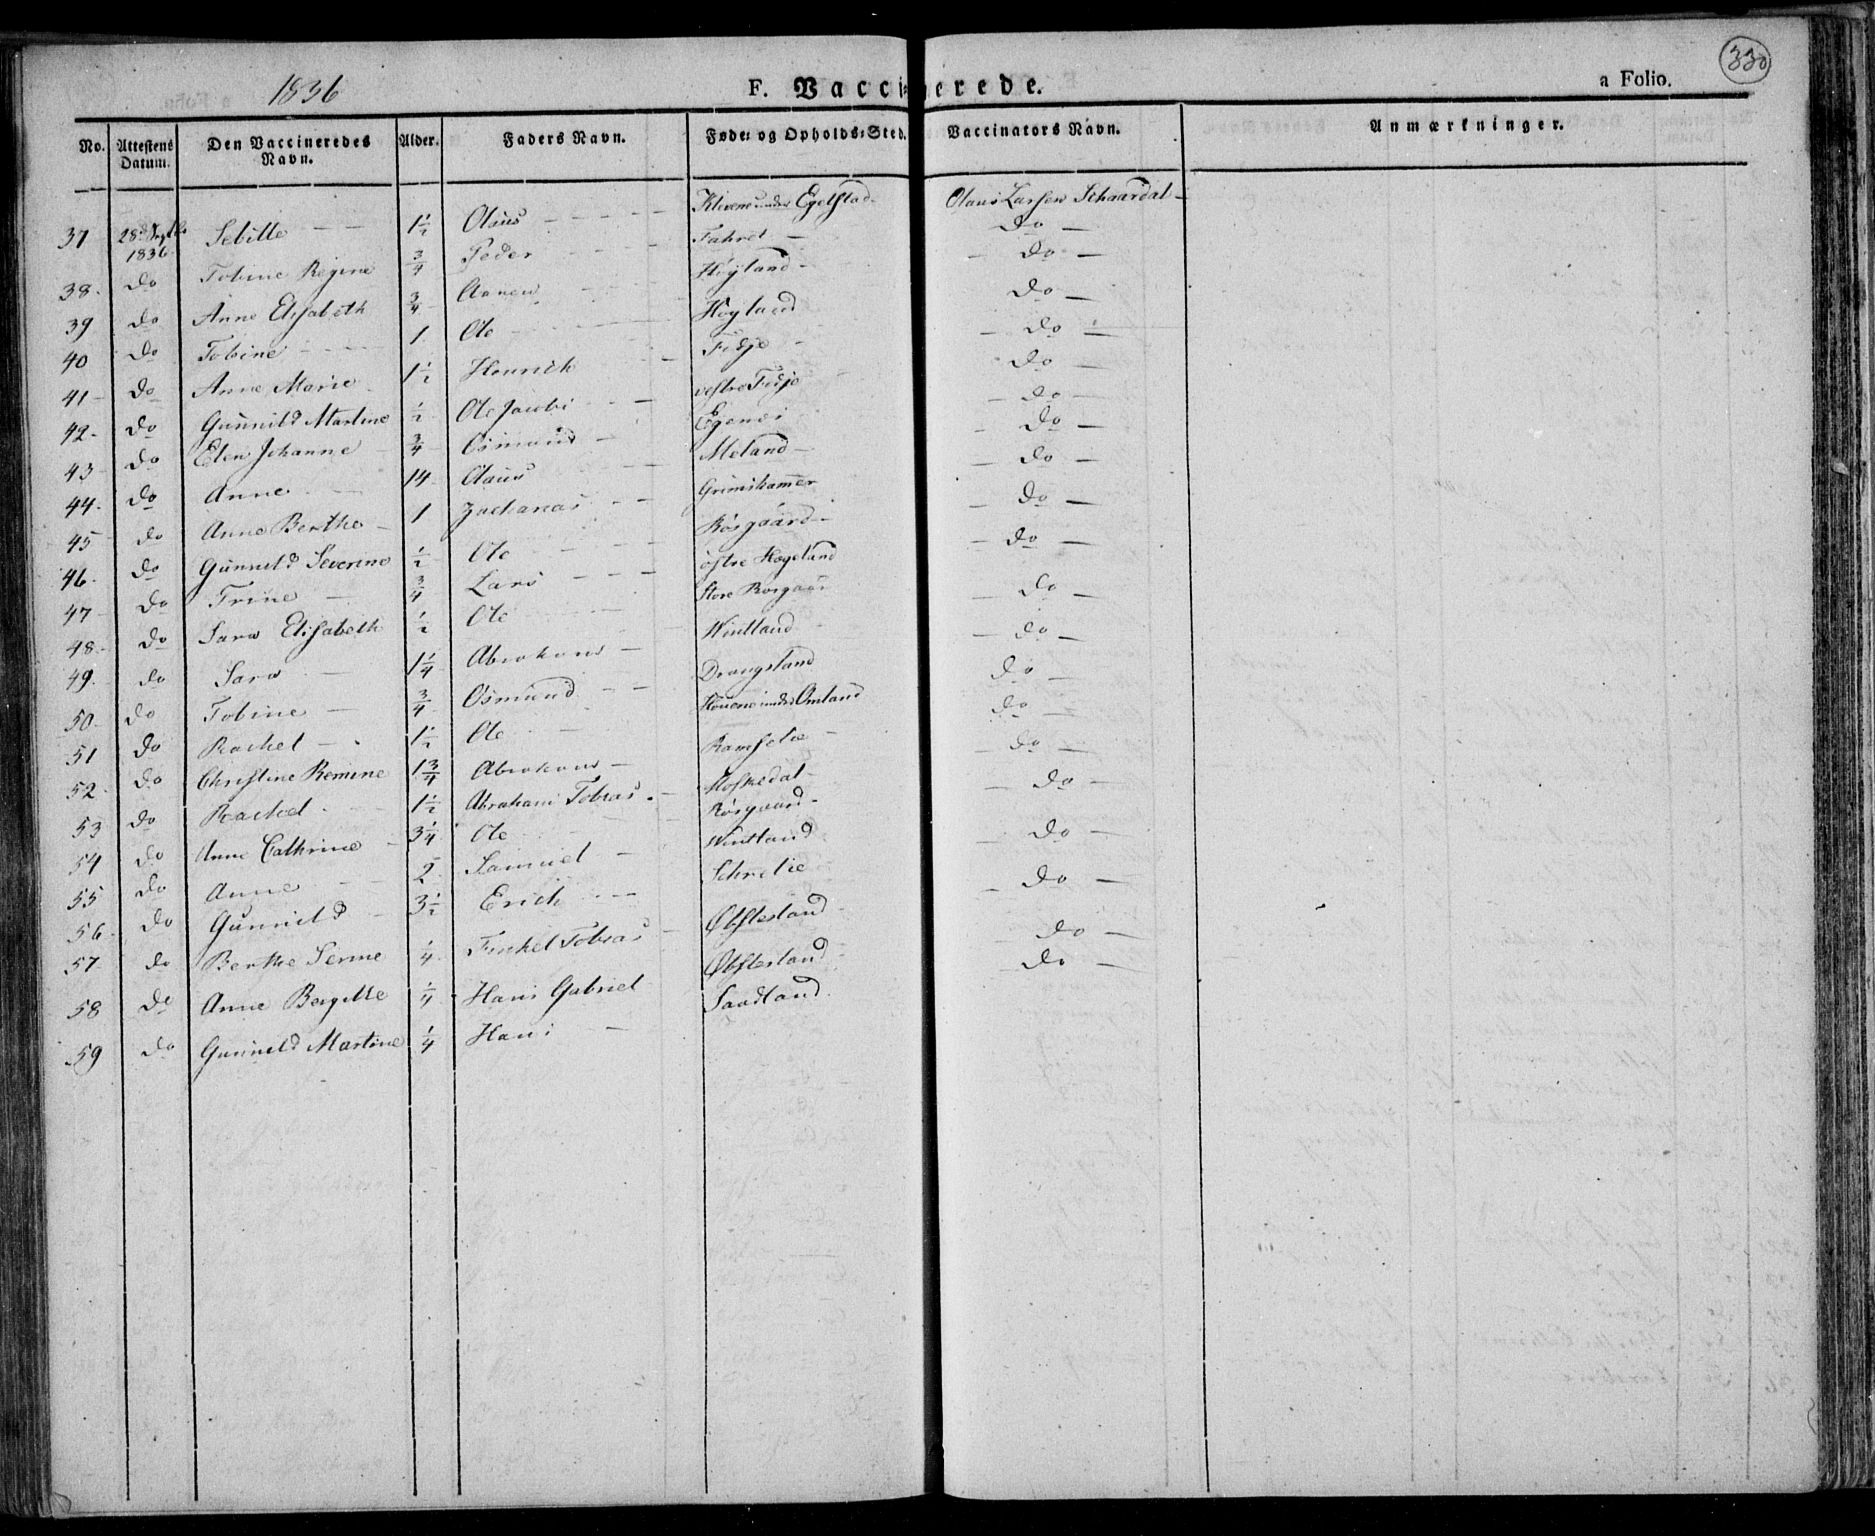 1836
F. Vaccinerede.
a Folio.
330
No. Attestens Datum. Den Vaccineredes Navn. Alder. Faders Navn. Føde- og Opholds-Sted. Vaccinators Navn. Anmærkninger.
37 28de Septbr 1836 Sebille 1½ Olaus Klevene under Egelstad Olaus Larsen Schaardal
38 do Tobine Regine ¾ Peder Fahret do
39 do Anne Elisabeth ¾ Aanen Høyland do
40 do Tobine 1 Ole Høyland do
41 do Anne Marie 1½ Henrich Fidje do
42 do Gunnild Martine ½ Ole Jacobs vestre Fidje do
43 do Elen Johanne ¾ Osmund Egenes do
44 do Anne 14 Olaus Meland do
45 do Anne Berthe 1 Zacharias Grimshammer do
46 do Gunnild Severine ½ Ole Røsgaard do
47 do Trine ¾ Lars østre Hægeland do
48 do Sara Elisabeth ½ Ole Store Røsgaar do
49 do Sara 1¼ Abraham Wintland do
50 do Tobine ¾ Osmund Drangsland do
51 do Rachel 1½ Ole under Omland do
52 do Christine Remine 1¾ Abraham Ramselie do
53 do Rachel 1½ Abraham Tobias Moskedal do
54 do Anne Cathrine 3¼ Ole Røsgaard do
55 do Anne 2 Samuel Wintland do
56 do Gunnild 3½ Erich Schrelie do
57 do Berthe Serine ¼ Tobias Øbstesland do
58 do Anne Bergitte ¼ Hans Gabriel Øbstesland do
59 do Gunnild Martine ¼ Hans Saadland